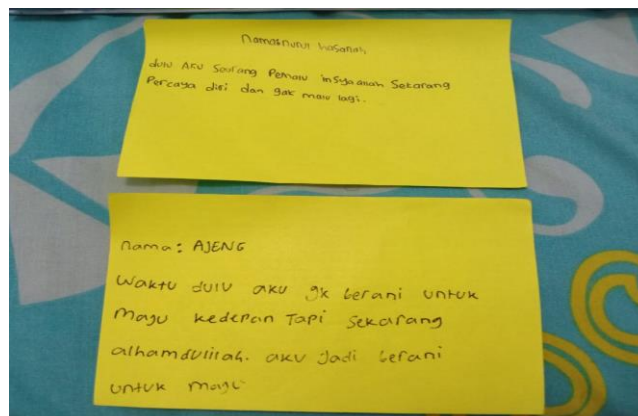 Nama: Nurul Hasanah
dulu Aku Seorang Pemalu insyaallah Sekarang
Percaya diri dan gak malu lagi.
nama: AJENG
Waktu dulu aku gk berani untuk
Maju kedepan Tapi Sekarang
alhamdulilah. aku Jadi berani
untuk maju